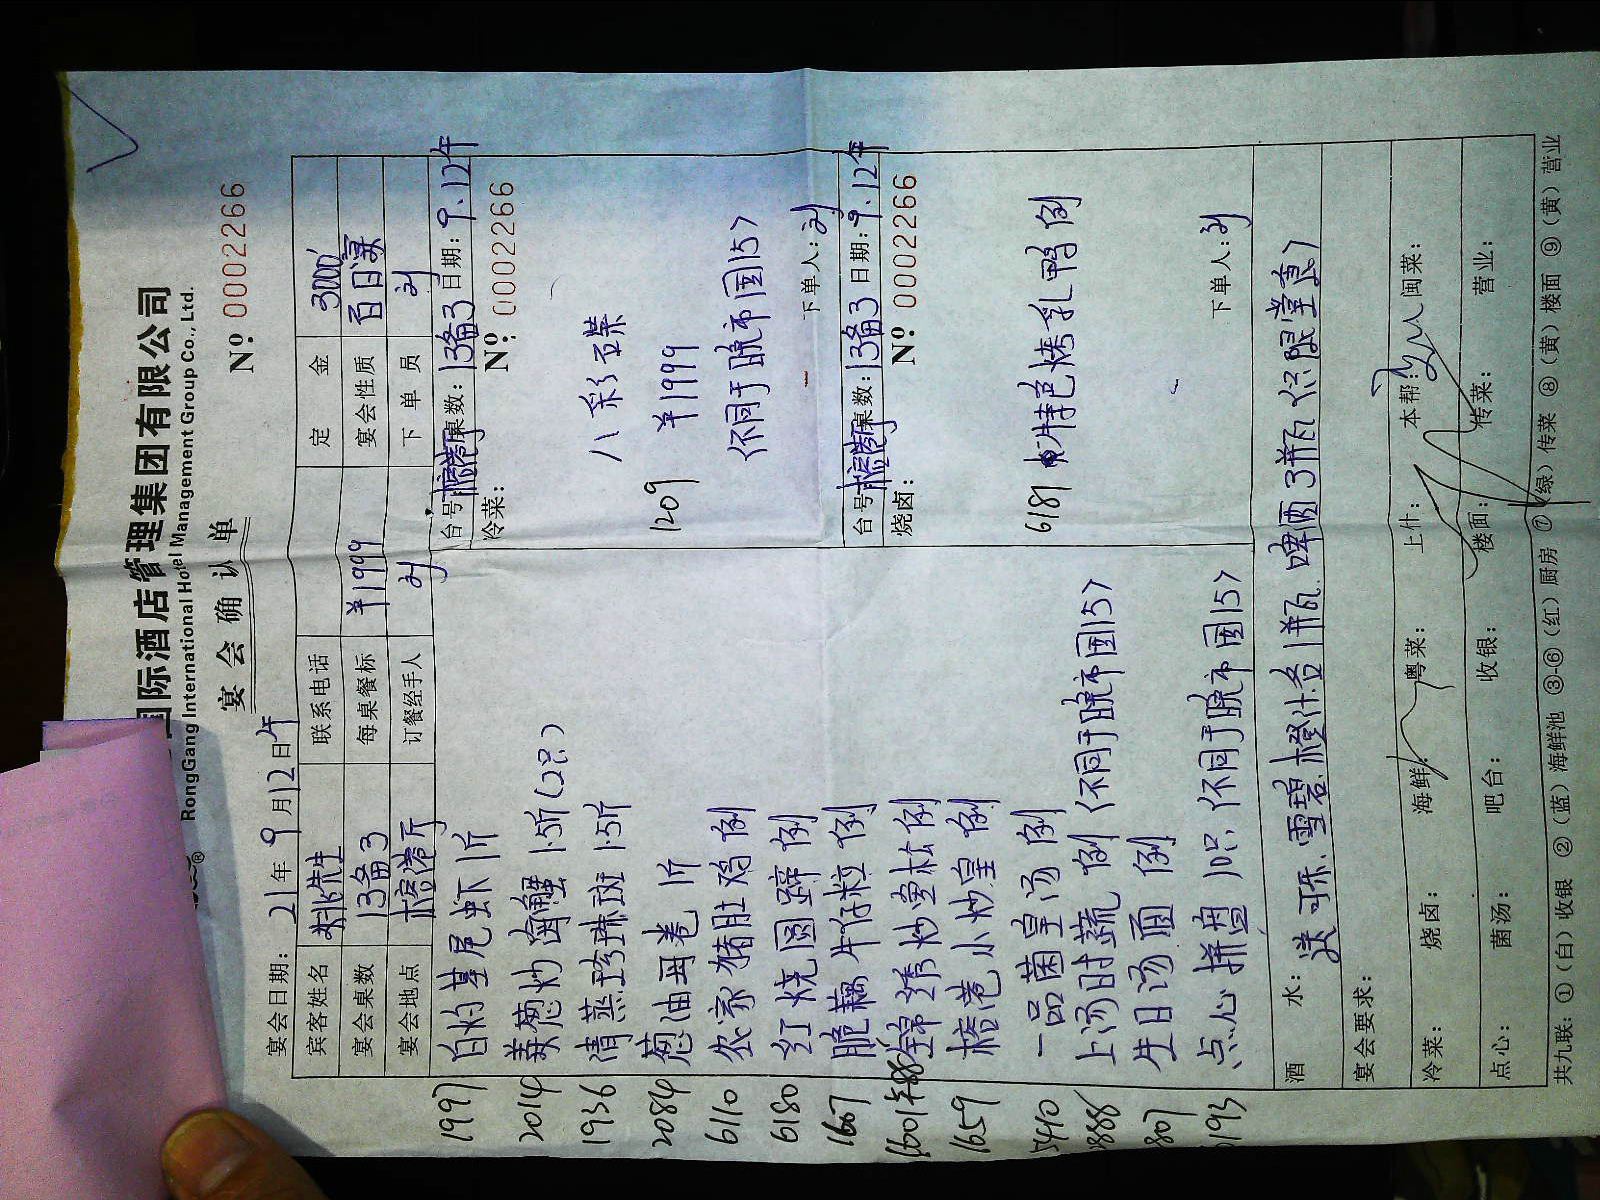 国际酒店管理集团有限公司
RongGang International Hotel Management Group Co., Ltd.
宴会确认单
Nº 0002266
宴会日期: 21年9月12日午
宾客姓名 先生 联系电话 定金 3000
宴会桌数 13备3 每桌餐标 ¥1999 宴会性质 百日宴
宴会地点 榕港厅 订餐经手人 刘 下单员 刘
1997 白灼基尾虾 1斤
2014 姜葱炒海蟹 1.5斤(2只)
1936 清蒸珍珠斑 1.5斤
2084 葱油母卷 1斤
6110 农家猪肚鸡 例
6180 红烧圆蹄 例
1667 脆藕牛仔粒 例
1601 锦绣炒雪松 例
1659 榕港小炒皇 例
5410 一品菌皇汤 例
8888 上汤时蔬 例 (不同于晚市国15)
807 生日汤面 例
点心拼盘 10只 (不同于晚市国15)
台号: 榕港厅 桌数: 13备3 日期: 9.12午
冷菜: Nº: 0002266
八彩碟
1209 ¥1999
(不同于晚市国15)
下单人: 刘
台号: 榕港厅 桌数: 13备3 日期: 9.12午
烧卤: Nº 0002266
6181 特色烤乳鸭 例
下单人: 刘
酒水: 送可乐.雪碧.橙汁各1瓶.啤酒3瓶(仅限堂食)
宴会要求:
冷菜: 烧卤: 海鲜: 粤菜: 上什: 本帮: 闽菜:
点心: 菌汤: 吧台: 收银: 楼面: 传菜: 营业:
共九联: ①(白)收银 ②(蓝)海鲜池 ③-⑥(红)厨房 ⑦(绿)传菜 ⑧(黄)楼面 ⑨(黄)营业